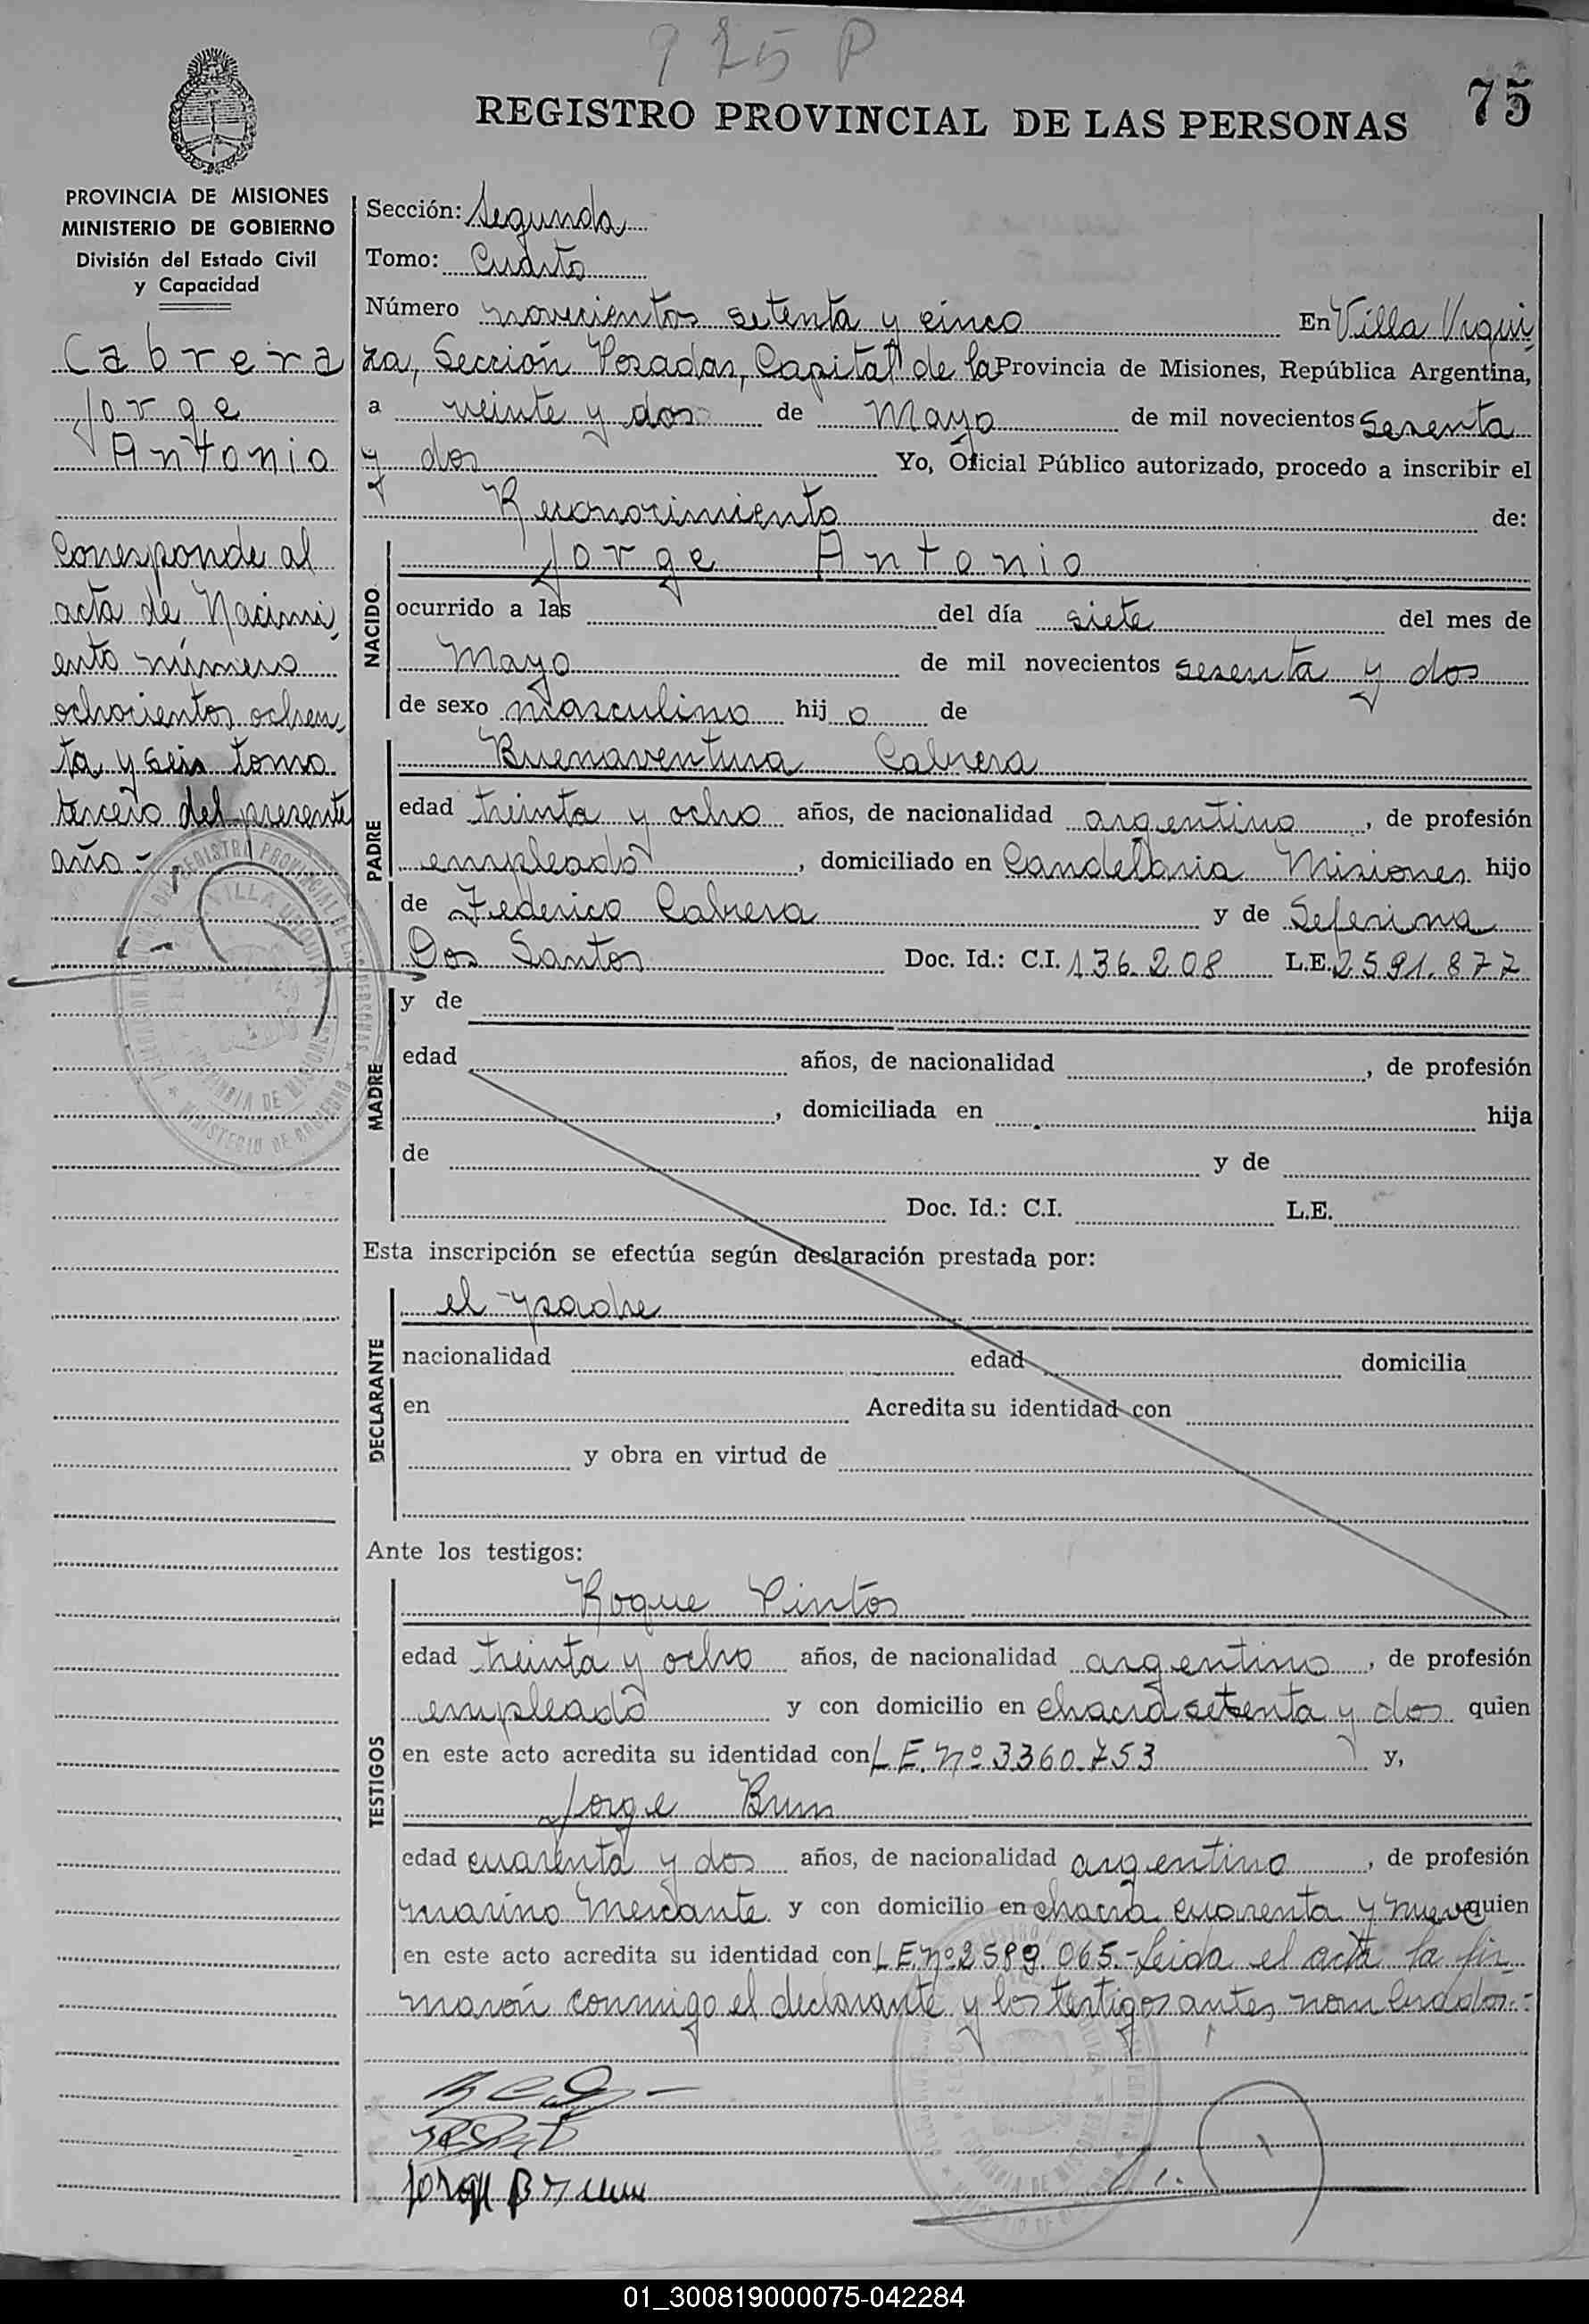 925 P
75
REGISTRO PROVINCIAL DE LAS PERSONAS
PROVINCIA DE MISIONES
MINISTERIO DE GOBIERNO
División del Estado Civil
y Capacidad
Cabrera
Jorge
Antonio
Corresponde al
acta de Nacimi
ento número
ochocientos ochen
ta y seis tomo
tercero del presente
año.-
Sección: Segunda
Tomo: Cuarto
Número novecientos setenta y cinco En Villa Urqui
za, Sección Posadas, Capital de la Provincia de Misiones, República Argentina,
a veinte y dos de Mayo de mil novecientos sesenta
y dos Yo, Oficial Público autorizado, procedo a inscribir el
Reconocimiento de:
NACIDO
Jorge Antonio
ocurrido a las del día siete del mes de
Mayo de mil novecientos sesenta y dos
de sexo masculino hij o de
PADRE
Buenaventura Cabrera
edad treinta y ocho años, de nacionalidad argentino, de profesión
empleado, domiciliado en Candelaria Misiones hijo
de Federico Cabrera y de Seferina
Dos Santos Doc. Id.: C.I. 136.208 L.E. 2591.877
MADRE
y de
edad años, de nacionalidad , de profesión
, domiciliada en hija
de y de
Doc. Id.: C.I. L.E.
Esta inscripción se efectúa según declaración prestada por:
DECLARANTE
el padre
nacionalidad edad domicilia
en Acredita su identidad con
y obra en virtud de
Ante los testigos:
TESTIGOS
Roque Pintos
edad treinta y ocho años, de nacionalidad argentino, de profesión
empleado y con domicilio en chacra setenta y dos quien
en este acto acredita su identidad con L E. Nº 3360.753 y,
Jorge Brun
edad cuarenta y dos años, de nacionalidad argentino, de profesión
marino mercante y con domicilio en chacra cuarenta y nueve quien
en este acto acredita su identidad con L E. Nº 2589.065.- Leida el acta la fir
maron conmigo el declarante y los testigos antes nombrados.-
01_300819000075-042284